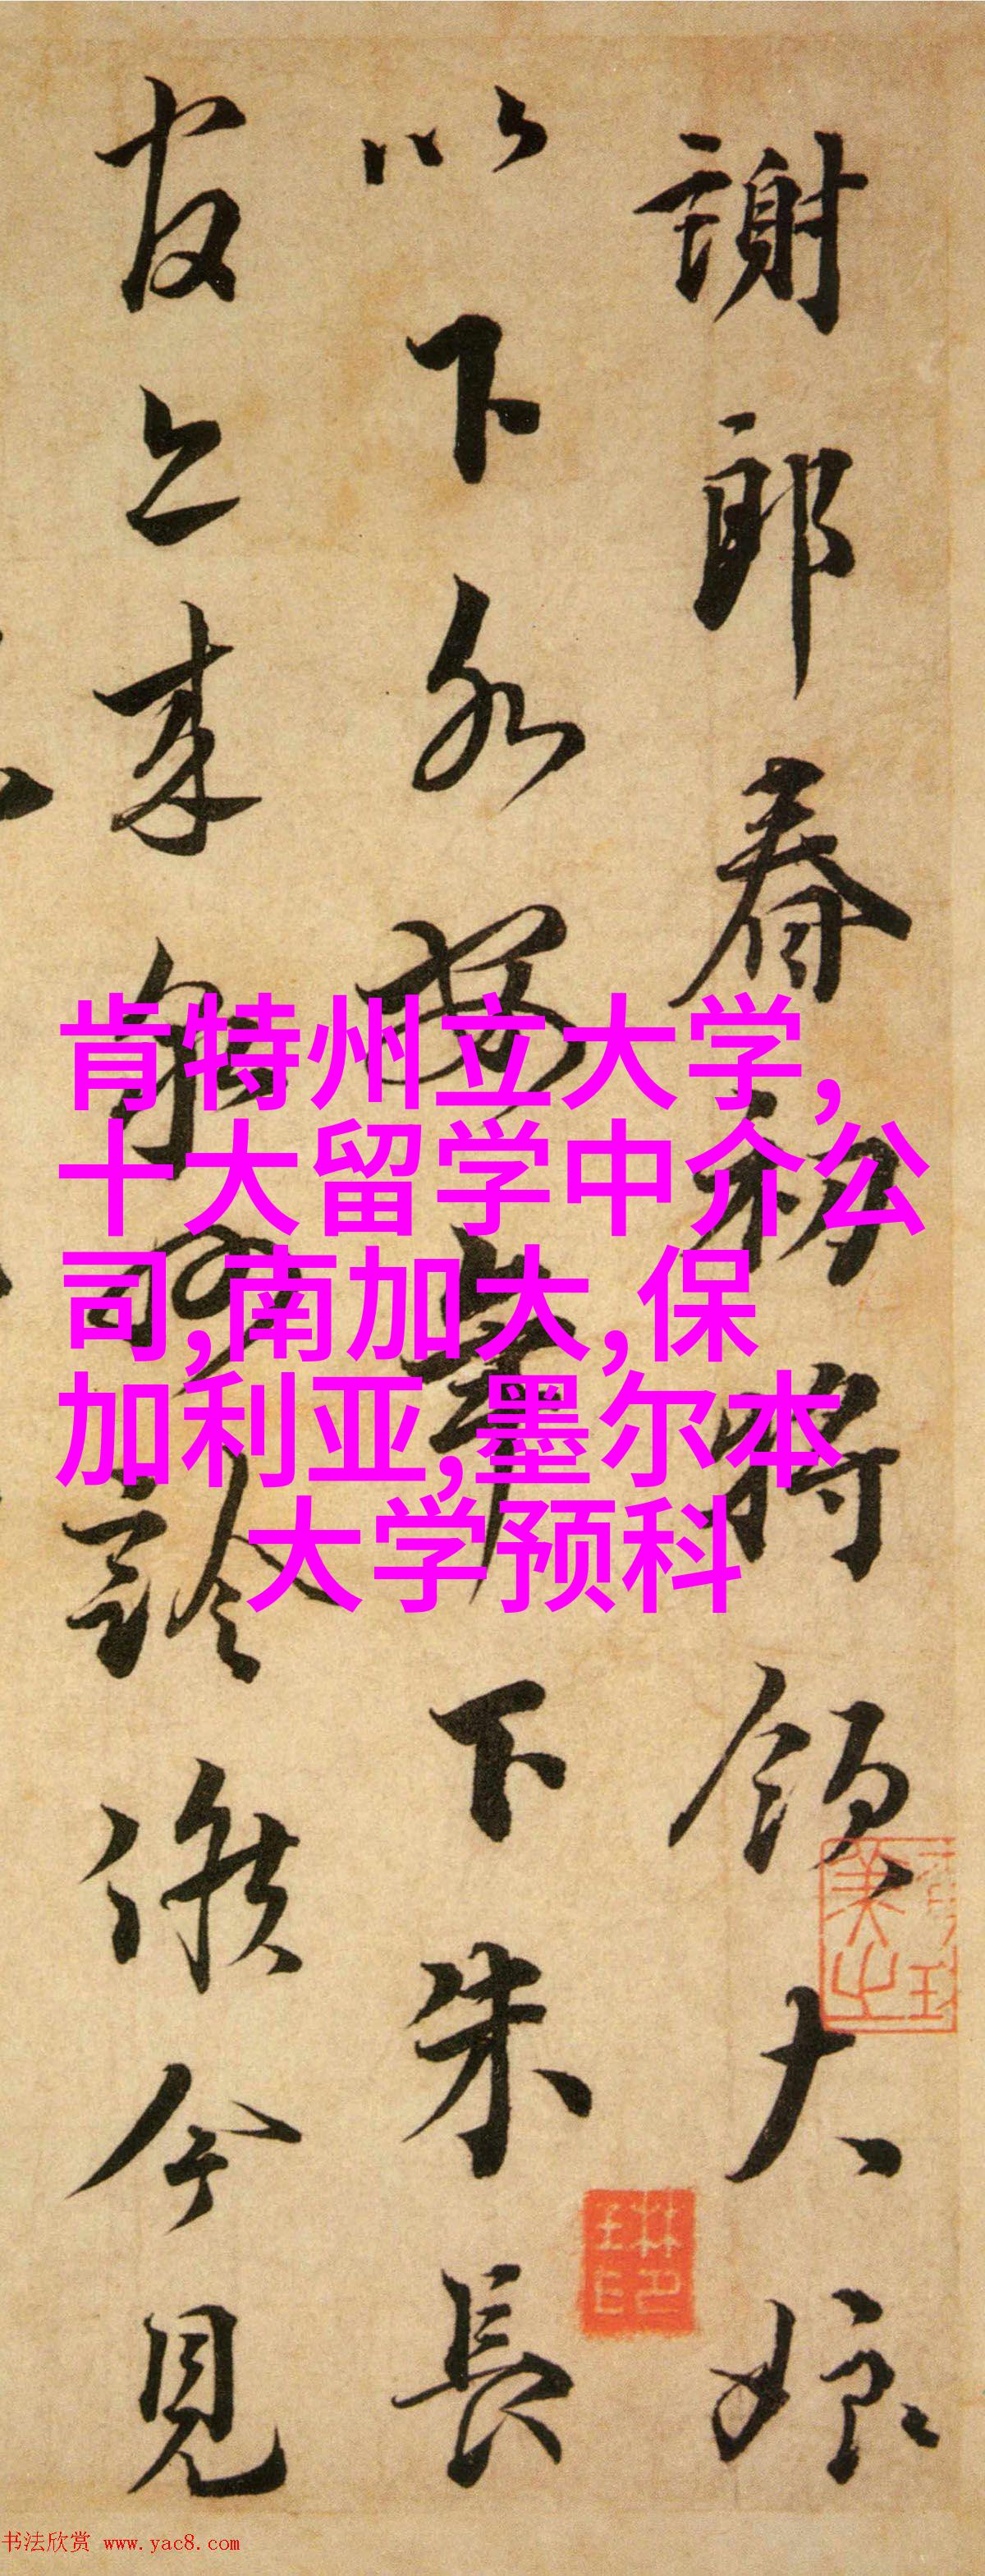 謝郎春初将領大娘
以下水陽 下朱長
友之来 診候今見
肯特州立大学,
十大留学中介公
司,南加大,保
加利亚,墨尔本
大学预科
书法欣赏 www.yac8.com